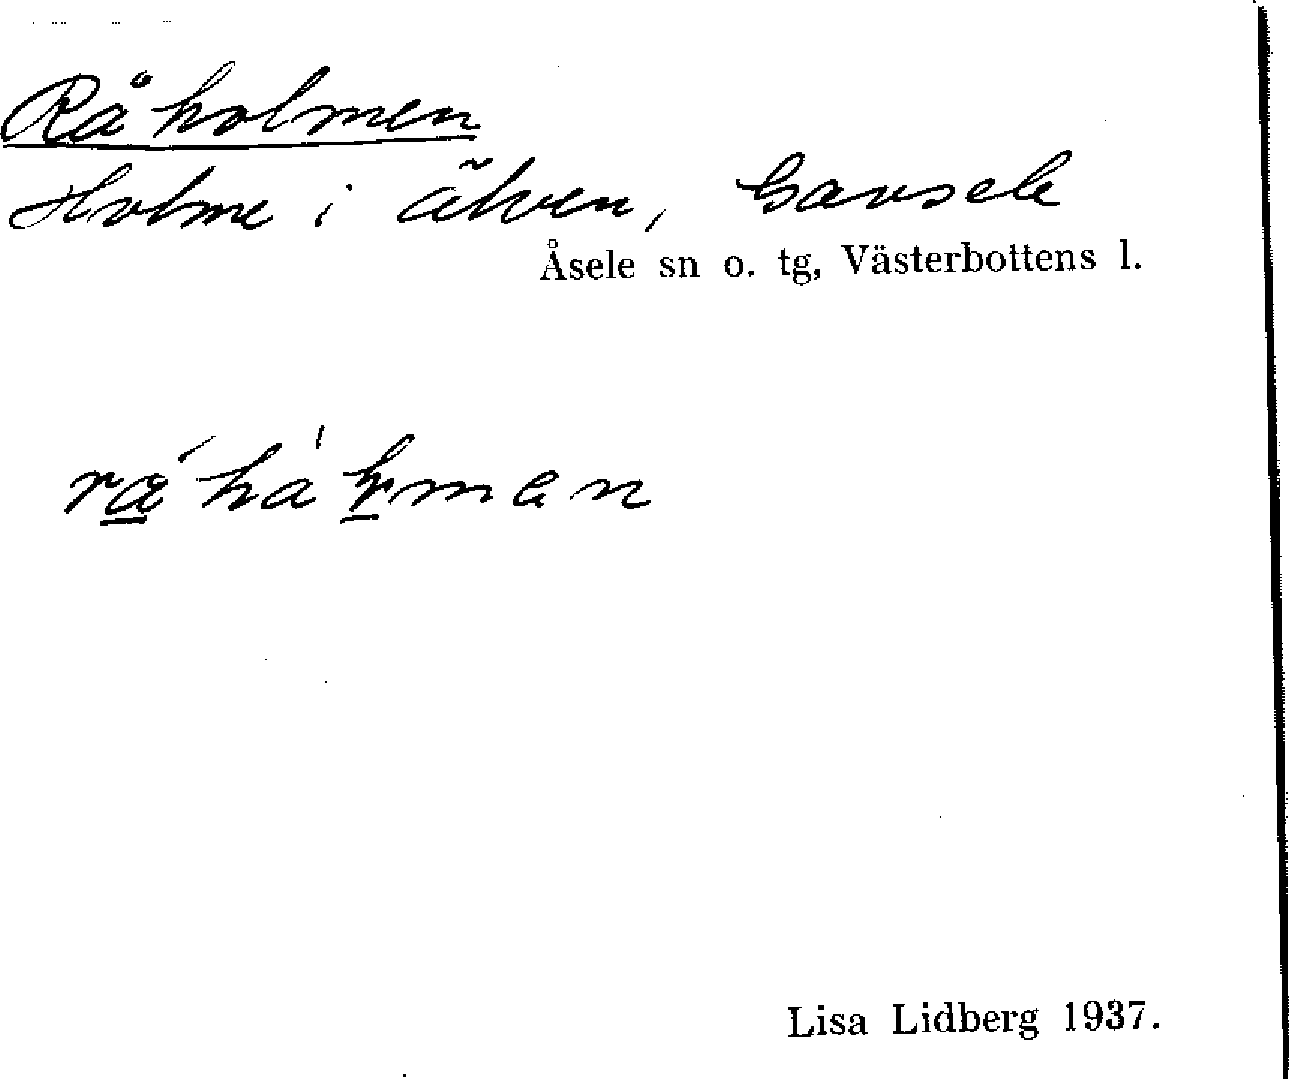 Råholmen
Holme i älven, Gavsele
Åsele sn o. tg, Västerbottens l.
Lisa Lidberg 1937.